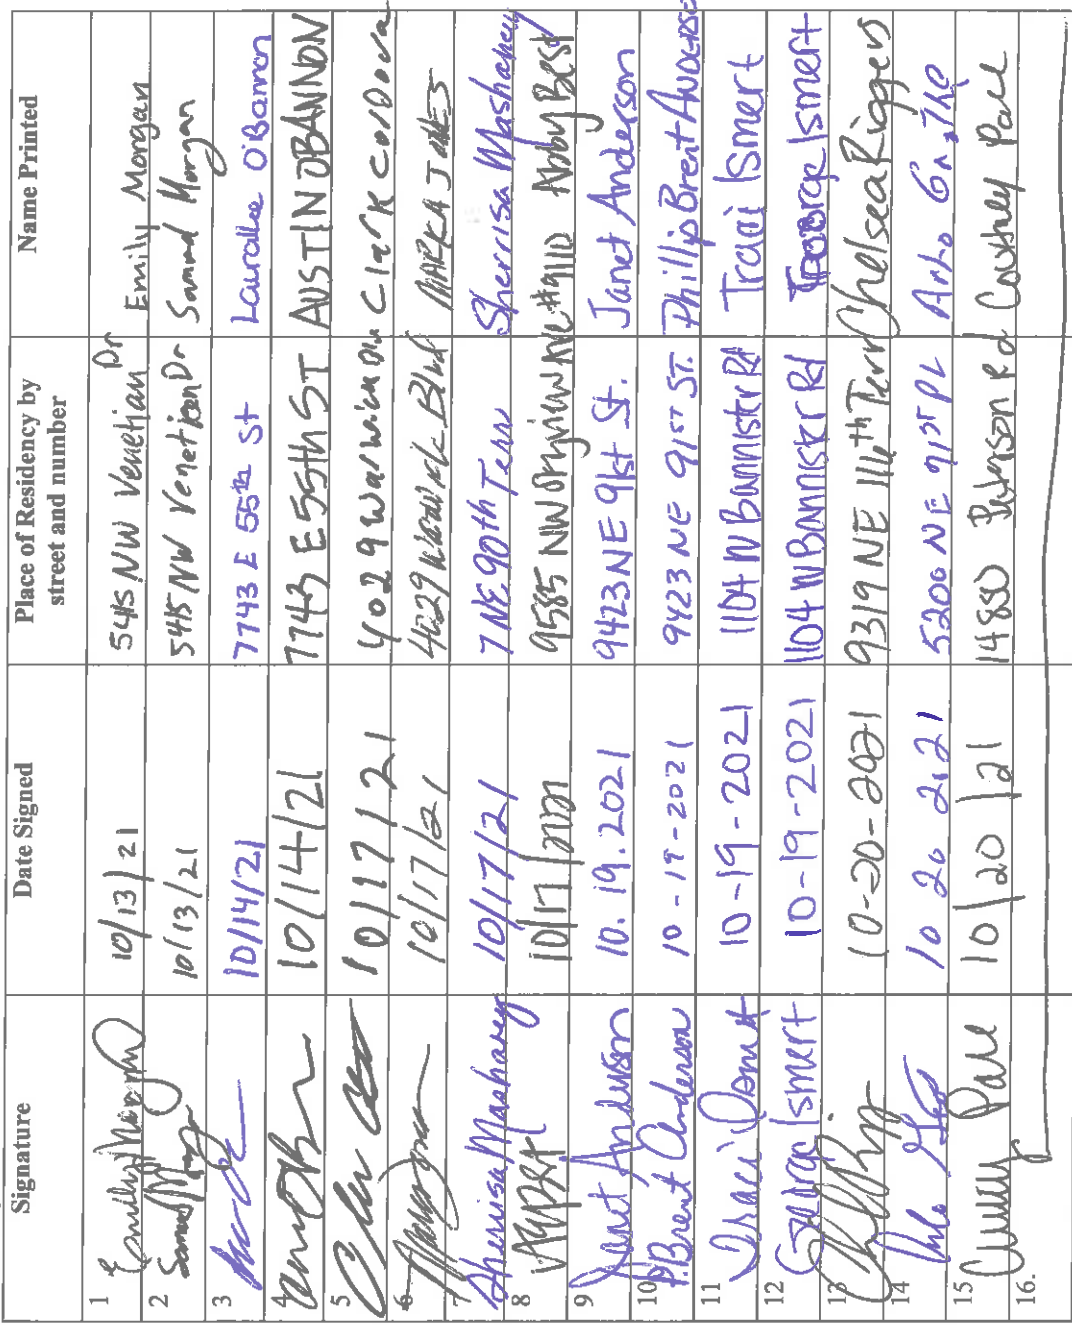 Signature Date Signed Place of Residency by street and number Name Printed
1 Emily Morgan 10/13/21 5415 NW Venetian Dr Emily Morgan
2 10/13/21 5415 NW Venetian Dr Samuel Morgan
3 10/14/21 7743 E 55th St Lauralee O'Bannon
4 10/14/21 7743 E 55th ST AUSTIN OBANNON
5 10/17/21 4029 Warwick Clark Cordova
6 10/17/21 4029 Warwick Blvd
7 Sherrisa Mashaney 10/17/21 7 NE 90th Terr Sherrisa Mashaney
8 10/17/2021 9585 NW #9110 Abby Best
9 Janet Anderson 10.19.2021 9423 NE 91st St. Janet Anderson
10 P. Brent Anderson 10-19-2021 9423 NE 91ST ST. Phillip Brent
11 Traci Ismert 10-19-2021 1104 W Bannister Rd Traci Ismert
12 George Ismert 10-19-2021 1104 W Bannister Rd George Ismert
13 10-20-2021 9319 NE 116th Terr Chelsea Riggers
14 10 20 2021 5200 NE 91ST PL
15 Pace 10/20/21 14880 Peterson Rd Courtney Pace
16.